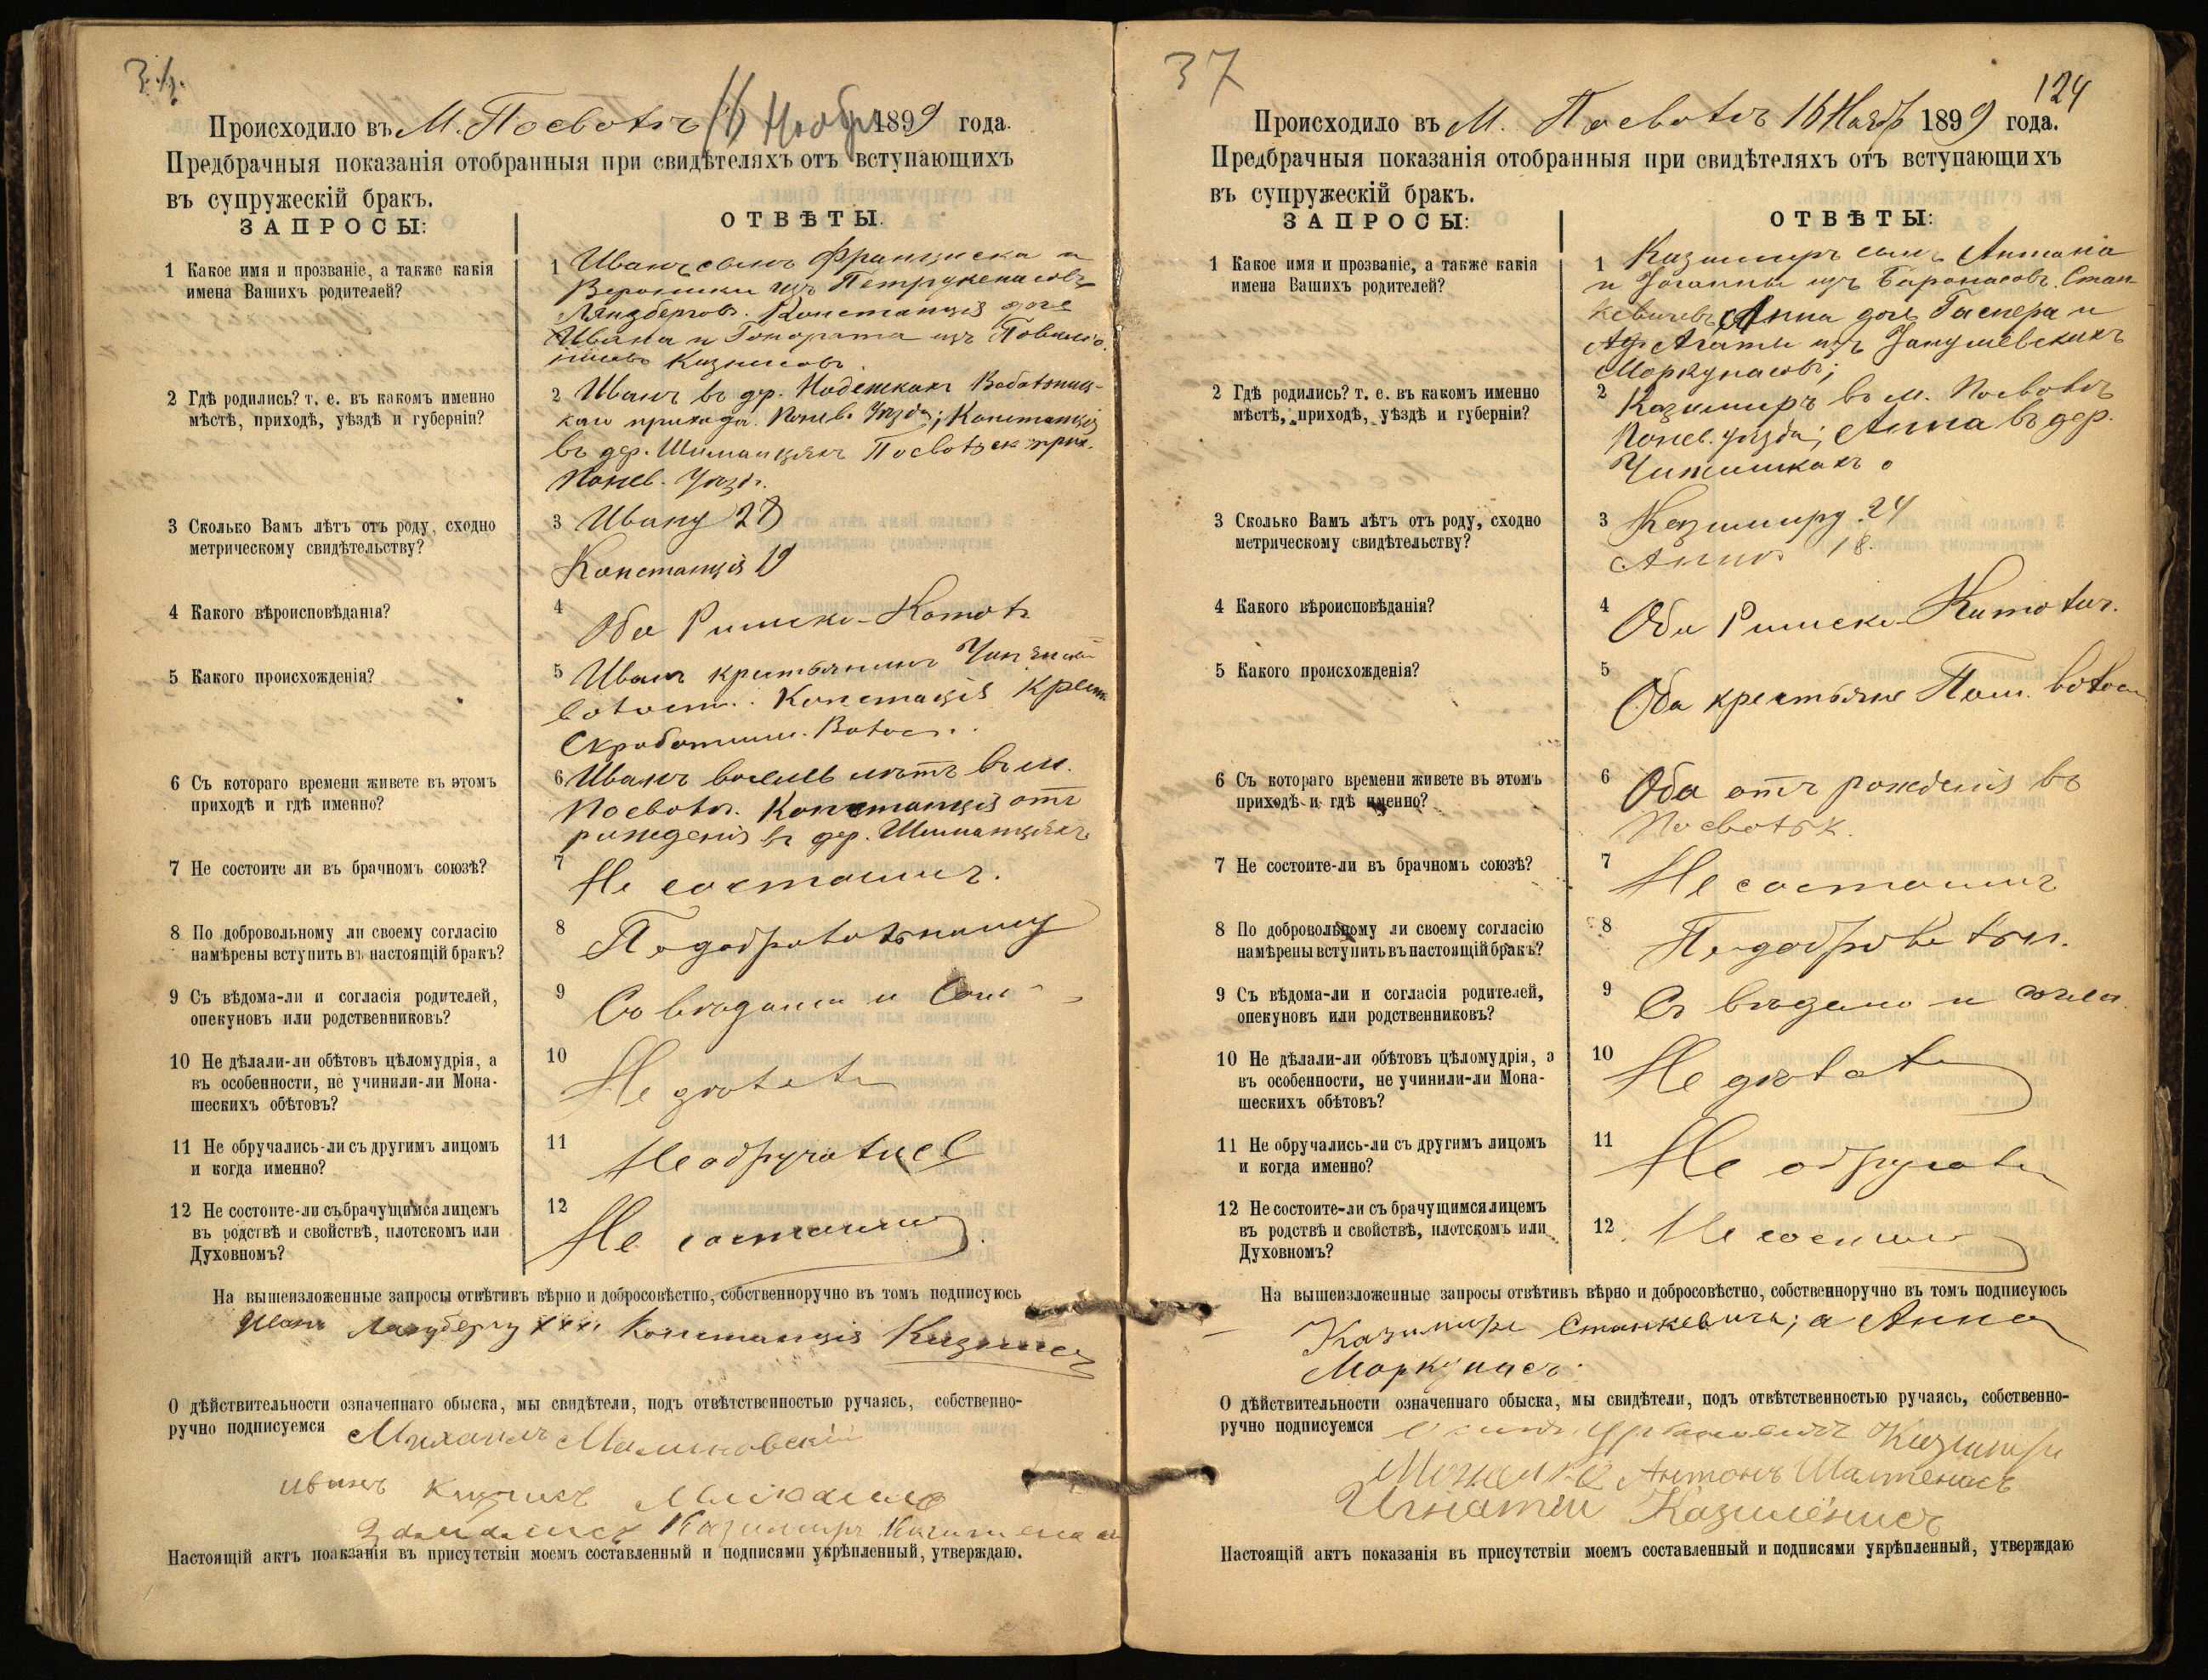 Происходило въ М. Посволѣ 16 Ноябр 1899 года.
Предбрачныя показанія отобранныя при свидѣтеляхъ отъ вступающихъ
въ супружескій бракъ.
ЗАПРОСЫ:
ОТВѢТЫ.
1 Какое имя и прозваніе, а также какія
имена Вашихъ родителей?
1 Иванъ сынъ Франциска и
Вероники изъ
Константія дочь
Ивана и изъ
2 Гдѣ родились? т. е. въ какомъ именно
мѣстѣ, приходѣ, уѣздѣ и губерніи?
2 Иванъ въ дер.
прихода Понев. Уѣзда; Константія
въ дер. Шиманцяхъ Посвольск. прих.
Понев. Уѣзд.
3 Сколько Вамъ лѣтъ отъ роду, сходно
метрическому свидѣтельству?
3 Ивану
Константія 19
4 Какого вѣроисповѣданія?
4 Оба Римско-Катол
5 Какого происхожденія?
5 Иванъ крестьянинъ
волост. Константія Крест
Скробатишк. Волос.
6 Съ котораго времени живете въ этомъ
приходѣ и гдѣ именно?
6 Иванъ восемь лѣтъ въ м.
Посволѣ. Константія отъ
рожденія въ дер. Шиманцяхъ
7 Не состоите ли въ брачномъ союзѣ?
7 Не состоимъ.
8 По добровольному ли своему согласію
намѣрены вступить въ настоящій бракъ?
8 По добровольному
9 Съ вѣдома-ли и согласія родителей,
опекуновъ или родственниковъ?
9 Со вѣдома и Сог
10 Не дѣлали-ли обѣтовъ цѣломудрія, а
въ особенности, не учинили-ли Мона-
шескихъ обѣтовъ?
10 Не дѣлали
11 Не обручались-ли съ другимъ лицомъ
и когда именно?
11 Не обручались
12 Не состоите-ли съ брачущимся лицемъ
въ родствѣ и свойствѣ, плотскомъ или
Духовномъ?
12 Не состоимъ
На вышеизложенные запросы отвѣтивъ вѣрно и добросовѣстно, собственноручно въ томъ подписуюсь
Иванъ ххх, Константія
О дѣйствительности означеннаго обыска, мы свидѣтели, подъ отвѣтственностью ручаясь, собственно-
ручно подписуемся Михаилъ Малиновскій
иванъ
Казимиръ
Настоящій актъ поакзанія въ присутствіи моемъ составленный и подписями укрѣпленный, утверждаю.
37
124
Происходило въ М. Посволѣ 16 Нояб 1899 года.
Предбрачныя показанія отобранныя при свидѣтеляхъ отъ вступающихъ
въ супружескій бракъ.
ЗАПРОСЫ:
ОТВѢТЫ:
1 Какое имя и прозваніе, а также какія
имена Вашихъ родителей?
1 Казимиръ сынъ Антонія
и Іоганны изъ Баронасовъ Стан-
кевичевъ Анна дочь Гаспера и
Агаты изъ Янушевскихъ
Моркунасовъ;
2 Гдѣ родились? т. е. въ какомъ именно
мѣстѣ, приходѣ, уѣздѣ и губерніи?
2 Казимиръ въ м. Посволѣ
Понев. уѣзда; Анна въ дер.
3 Сколько Вамъ лѣтъ отъ роду, сходно
метрическому свидѣтельству?
3 Казимиру 24
Аннѣ 18.
4 Какого вѣроисповѣданія?
4 Оба Римско-Католич.
5 Какого происхожденія?
5 Оба крестьяне волос
6 Съ котораго времени живете въ этомъ
приходѣ и гдѣ именно?
6 Оба отъ рожденія въ
Посволѣ.
7 Не состоите-ли въ брачномъ союзѣ?
7 Не состоимъ
8 По добровольному ли своему согласію
намѣрены вступить въ настоящій бракъ?
8 По добровольн.
9 Съ вѣдома-ли и согласія родителей,
опекуновъ или родственниковъ?
9 Съ вѣдома и соглас.
10 Не дѣлали-ли обѣтовъ цѣломудрія, а
въ особенности, не учинили-ли Мона-
шескихъ обѣтовъ?
10 Не дѣлали
11 Не обручались-ли съ другимъ лицомъ
и когда именно?
11 Не обручали
12 Не состоите-ли съ брачущимся лицемъ
въ родствѣ и свойствѣ, плотскомъ или
Духовномъ?
12. Не состоим
На вышеизложенные запросы отвѣтивъ вѣрно и добросовѣстно, собственноручно въ томъ подписуюсь
Казимиръ Станкевичъ; а Анна
Моркунасъ.
О дѣйствительности означеннаго обыска, мы свидѣтели, подъ отвѣтственностью ручаясь, собственно-
ручно подписуемся Казимиръ
Антонъ Шалтенисъ
Игнатій Казилёнисъ
Настоящій актъ показанія въ присутствіи моемъ составленный и подписями укрѣпленный, утверждаю